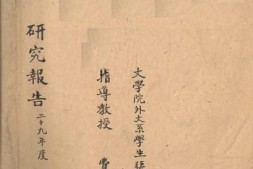 文學院外文系學生張
指導教授 費
研究報告 二十九年度